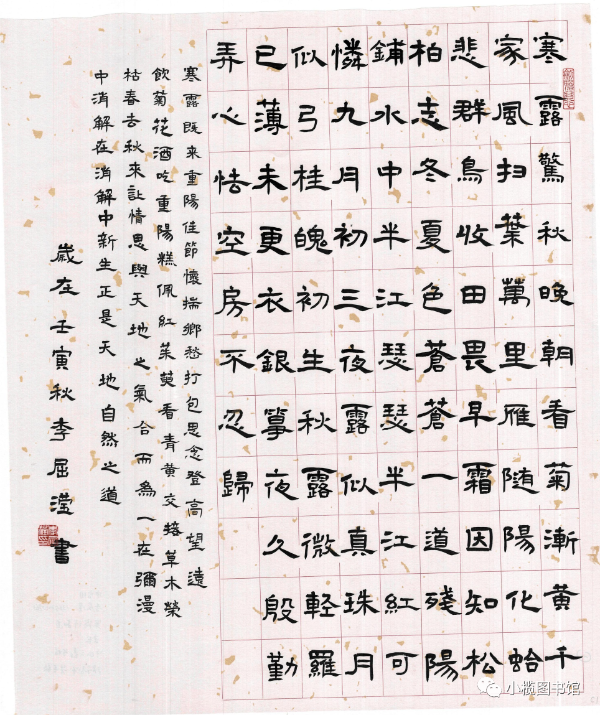 寒露驚秋晚朝看菊漸黃千
家風扫葉萬里雁随陽化蛤
悲群鳥收田畏早霜因知松
柏志冬夏色蒼蒼一道殘陽
鋪水中半江瑟瑟半江紅可
憐九月初三夜露似真珠月
似弓桂魄初生秋露微輕羅
已薄未更衣銀箏夜久殷勤
弄心怯空房不忍歸
寒露既来重陽佳節懷揣鄉愁打包思念登高望遠
飲菊花酒吃重陽糕佩紅茱萸看青黃交接草木榮
枯春去秋來让情思與天地之氣合而為一在彌漫
中消解在消解中新生正是天地自然之道
歲在壬寅秋李屈滢書
小榄图书馆